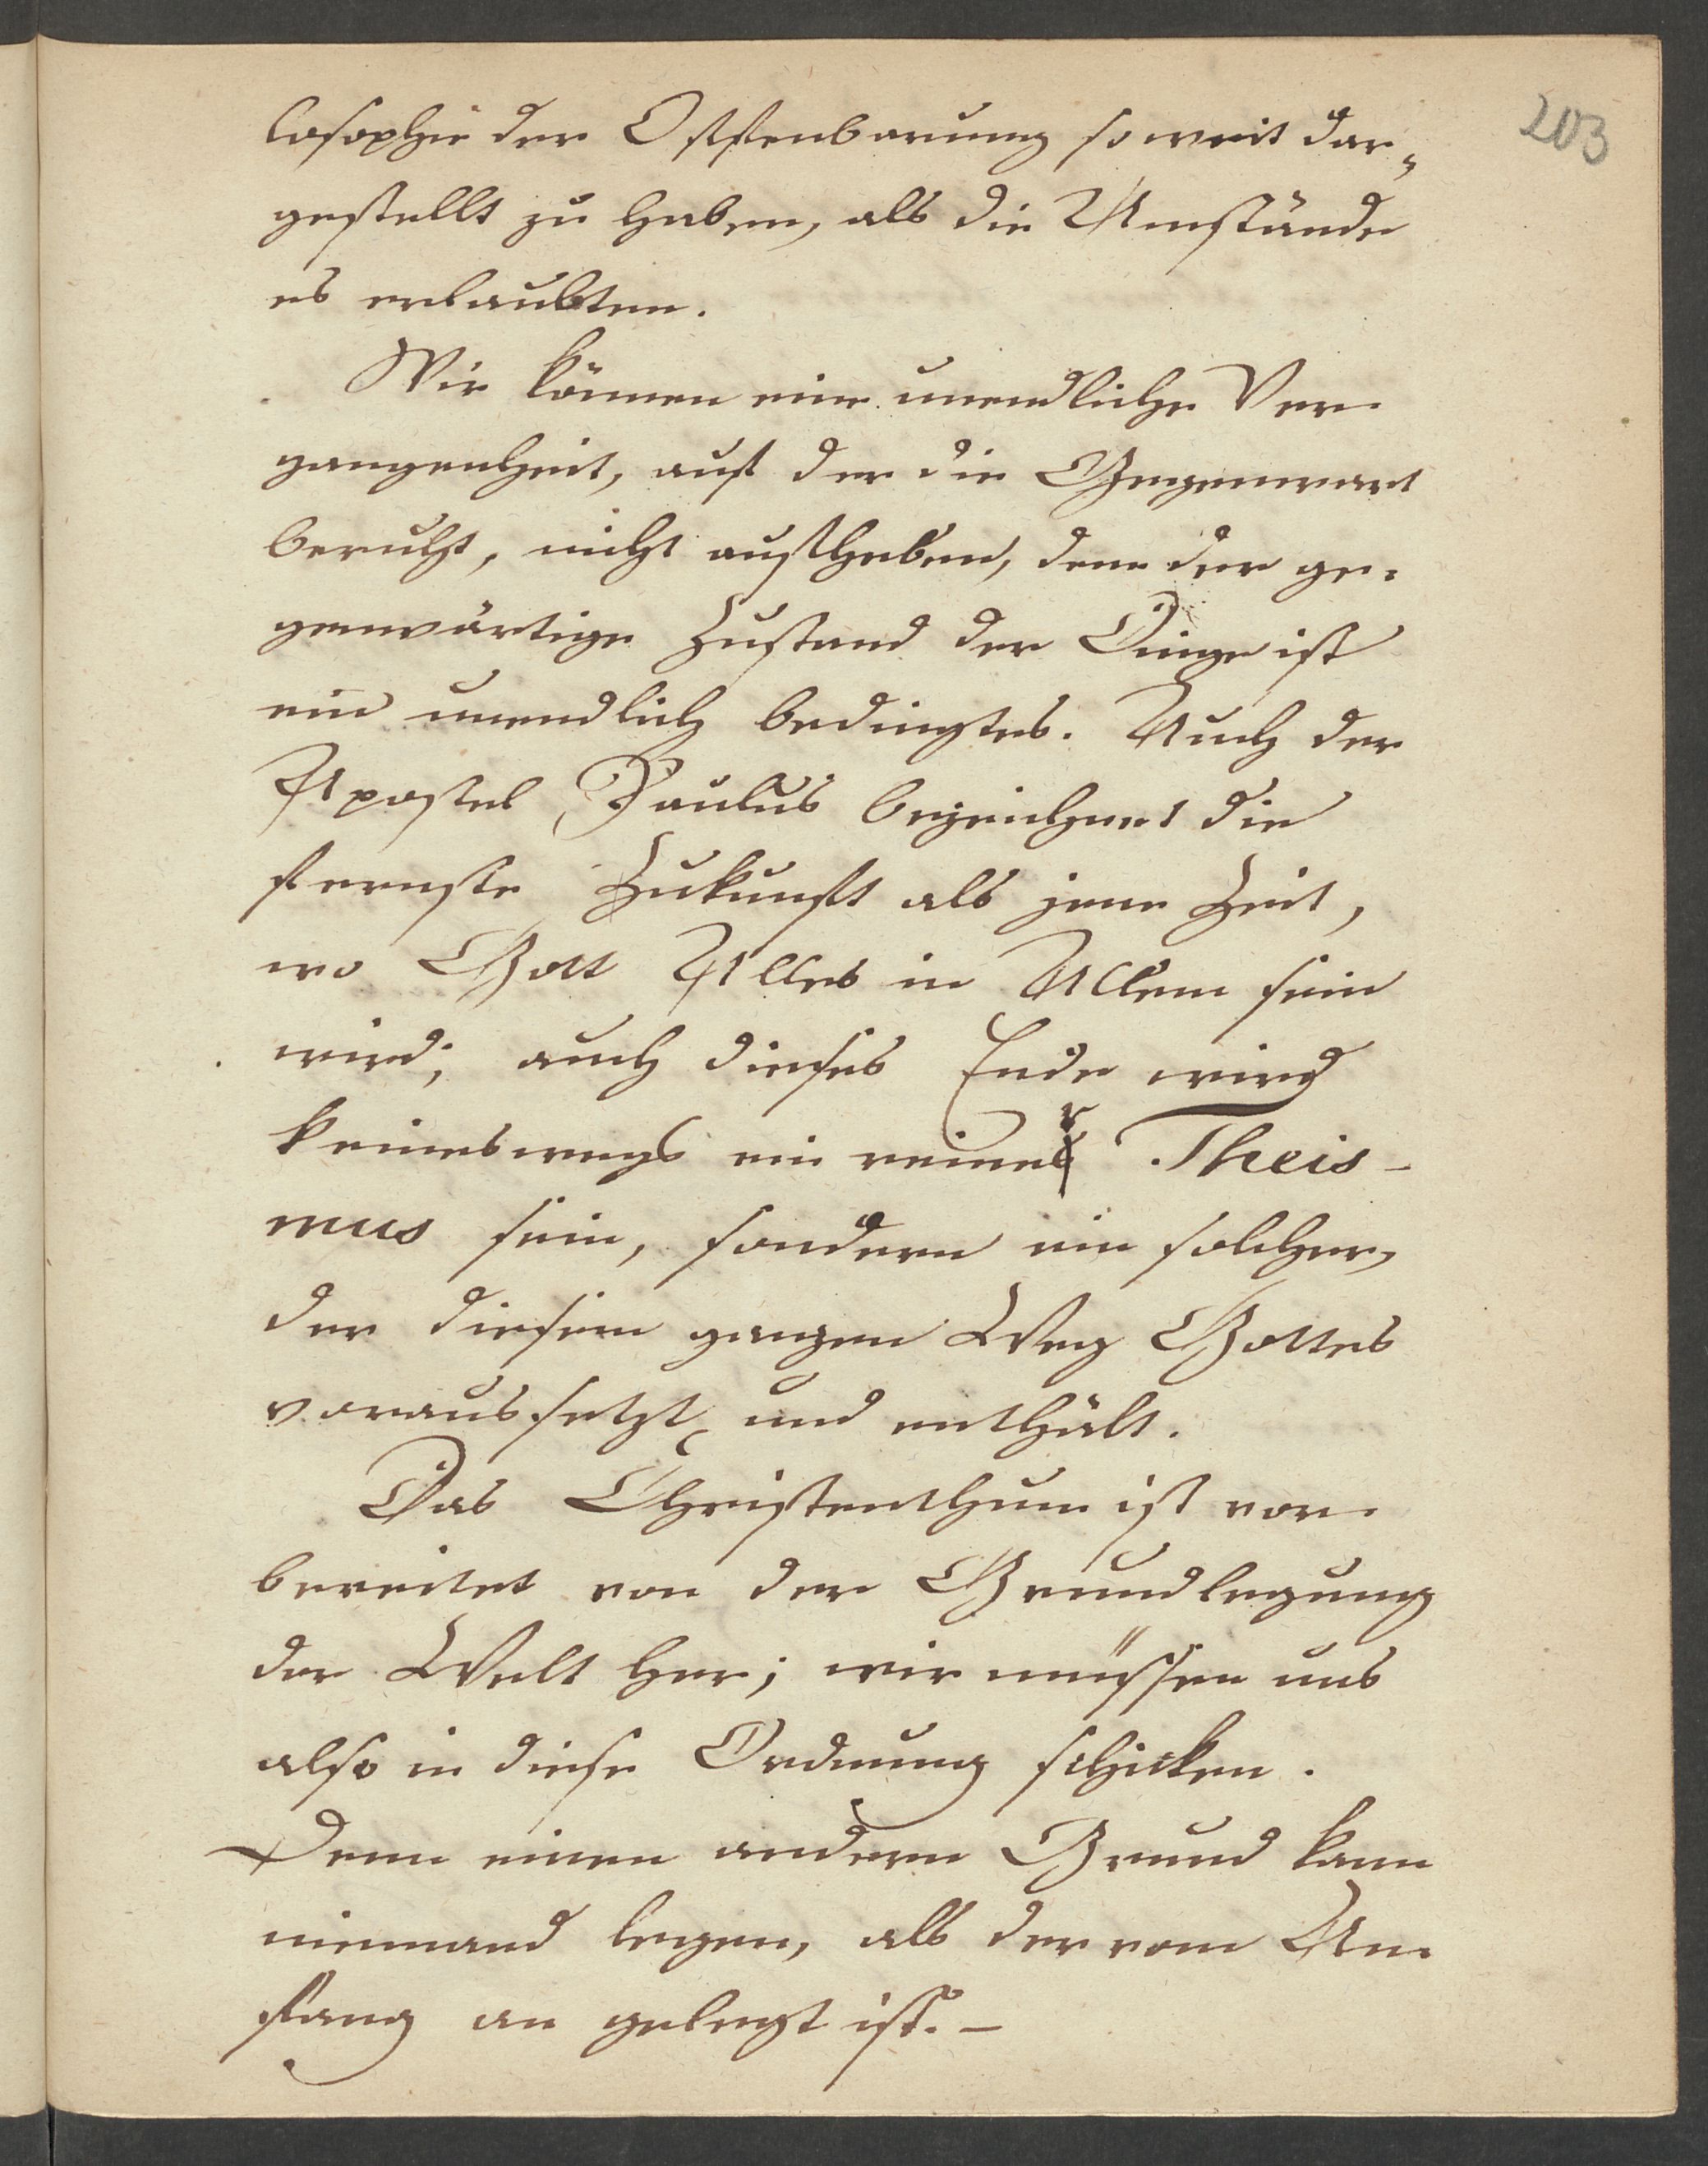 203
losophie der Offenbarung soweit dar„
gestellt zu haben, als die Umstände
es erlaubten.
Wir können eine unendliche Ver-
gangenheit, auf der die Gegenwart
beruht, nicht aufheben, denn der ge-
genwärtige Zustand der Dinge ist
ein unendlich bedingtes. Auch der
Apostel Paulus bezeichnet die
fernste Zukunft als jene Zeit,
wo Gott Alles in Allem sein
wird; auch dieses Ende wird
keineswegs ein reiner Theis-
mus sein, sondern ein solcher,
der diesem ganzen Weg Gottes
voraussetzt und enthält.
Das Christenthum ist vor-
bereitet von der Grundlegung
der Welt her; wir müssen uns
also in diese Ordnung schicken.
Denn einen andern Grund kann
niemand legen, als der vom An-
fang an gelegt ist. –